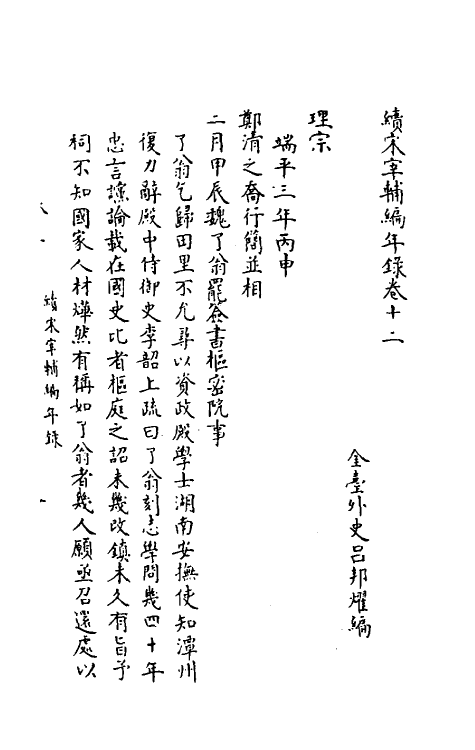 續宋宰輔編年錄卷十二
金臺外史呂邦燿編
理宗
端平三年丙申
鄭清之喬行簡並相
二月甲辰魏了翁罷簽書樞密院事
了翁乞歸田里不允尋以資政殿學士湖南安撫使知潭州
復力辭殿中侍御史李韶上疏曰了翁刻志學問幾四十年
忠言讜論載在國史比者樞庭之詔未幾改鎮未久有旨予
祠不知國家人材燁然有稱如了翁者幾人願亟召還處以
續宋宰輔編年錄
一